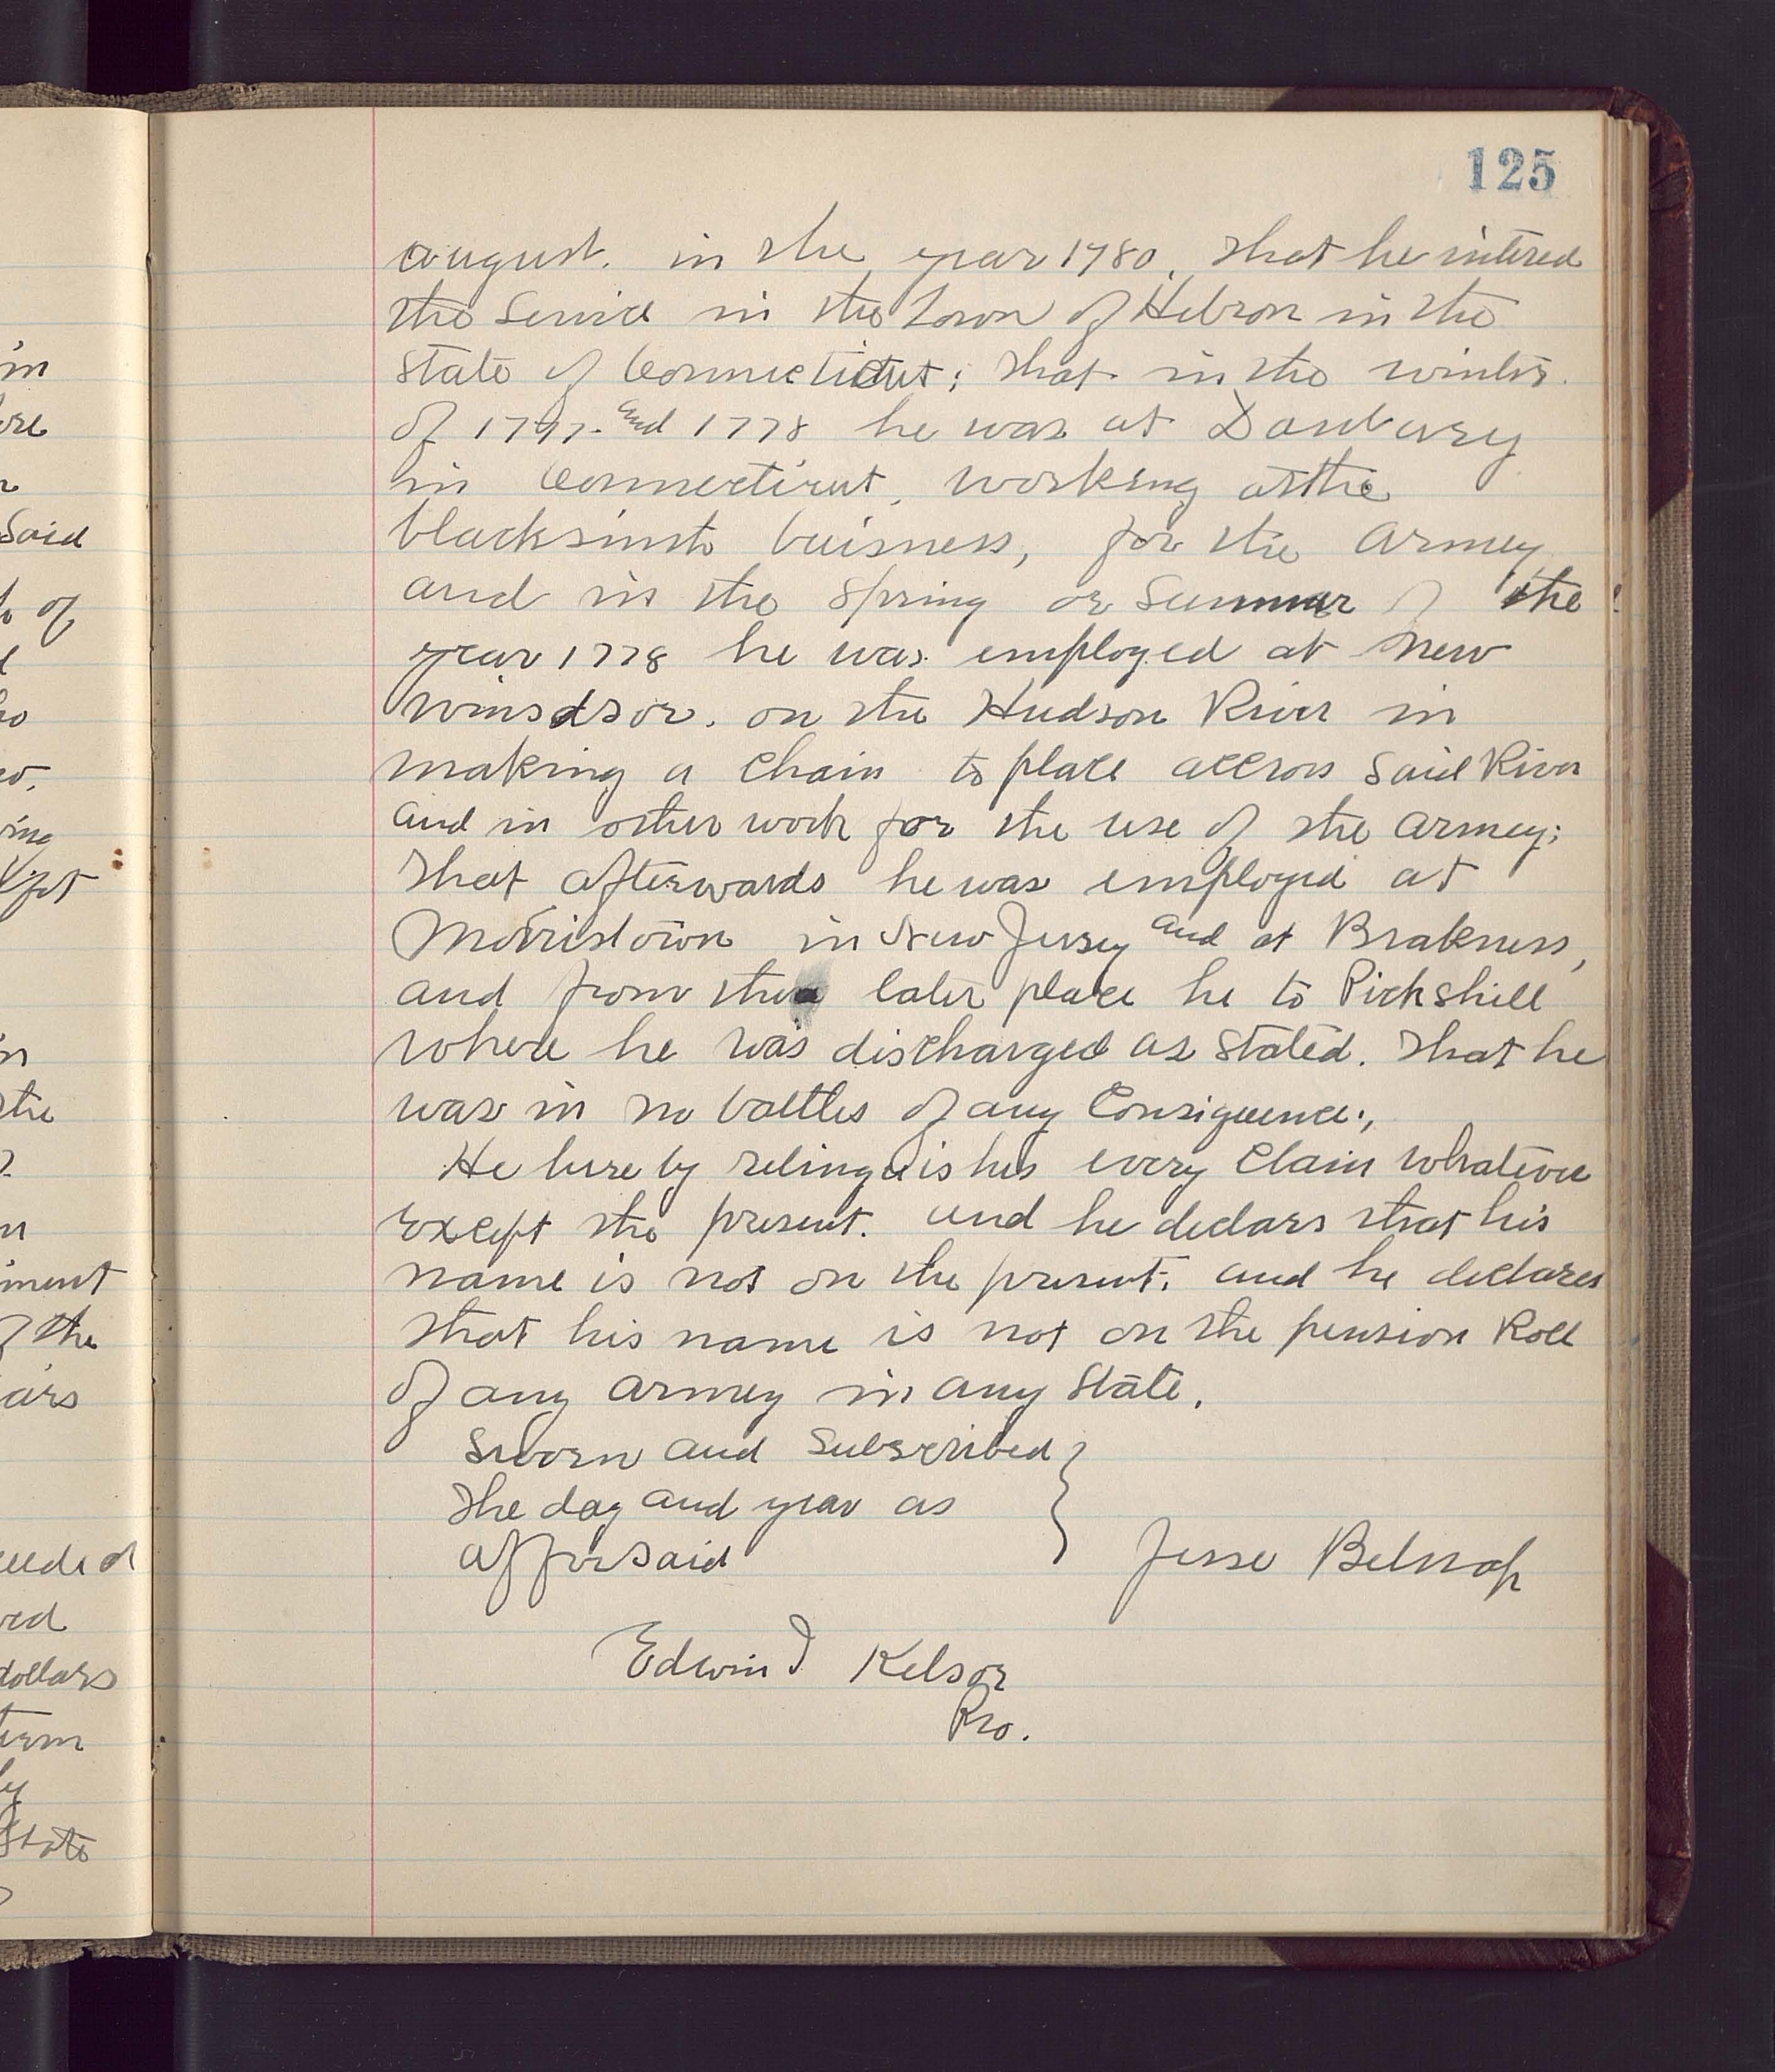 125
august. in the year 1780, that he intered
the Service in the town of Hebron in the
State of Connecticut; that in the winter.
of 1777. and 1778 he was at Danbury
in Connecticut, working at the
blacksmith buisness, for the Armey
and in the Spring or Summer of the
year 1778 he was employed at New
Winsdsor. on the Hudson River in
making a Chain to place accross Said River
and in other work for the use of the Armey;
that afterwards he was employed at
Morristown in New Jersey and at Brakness,
and from the later place he to Pickshill
where he was discharged as Stated. That he
was in no battles of any Consiquence.,
He here by relinquishes every Claim whatever
except the present. and he declars that his
name is not on the present. and he declares
that his name is not on the pension Roll
of any Armey in any State.
Sworn and Subscribed
the day and year as
afforsaid
Jesse Belnap
Edwin J Kelsor
Pro.
in
Said
of
ving
the
iment
the
ars
dollars
term
by
State